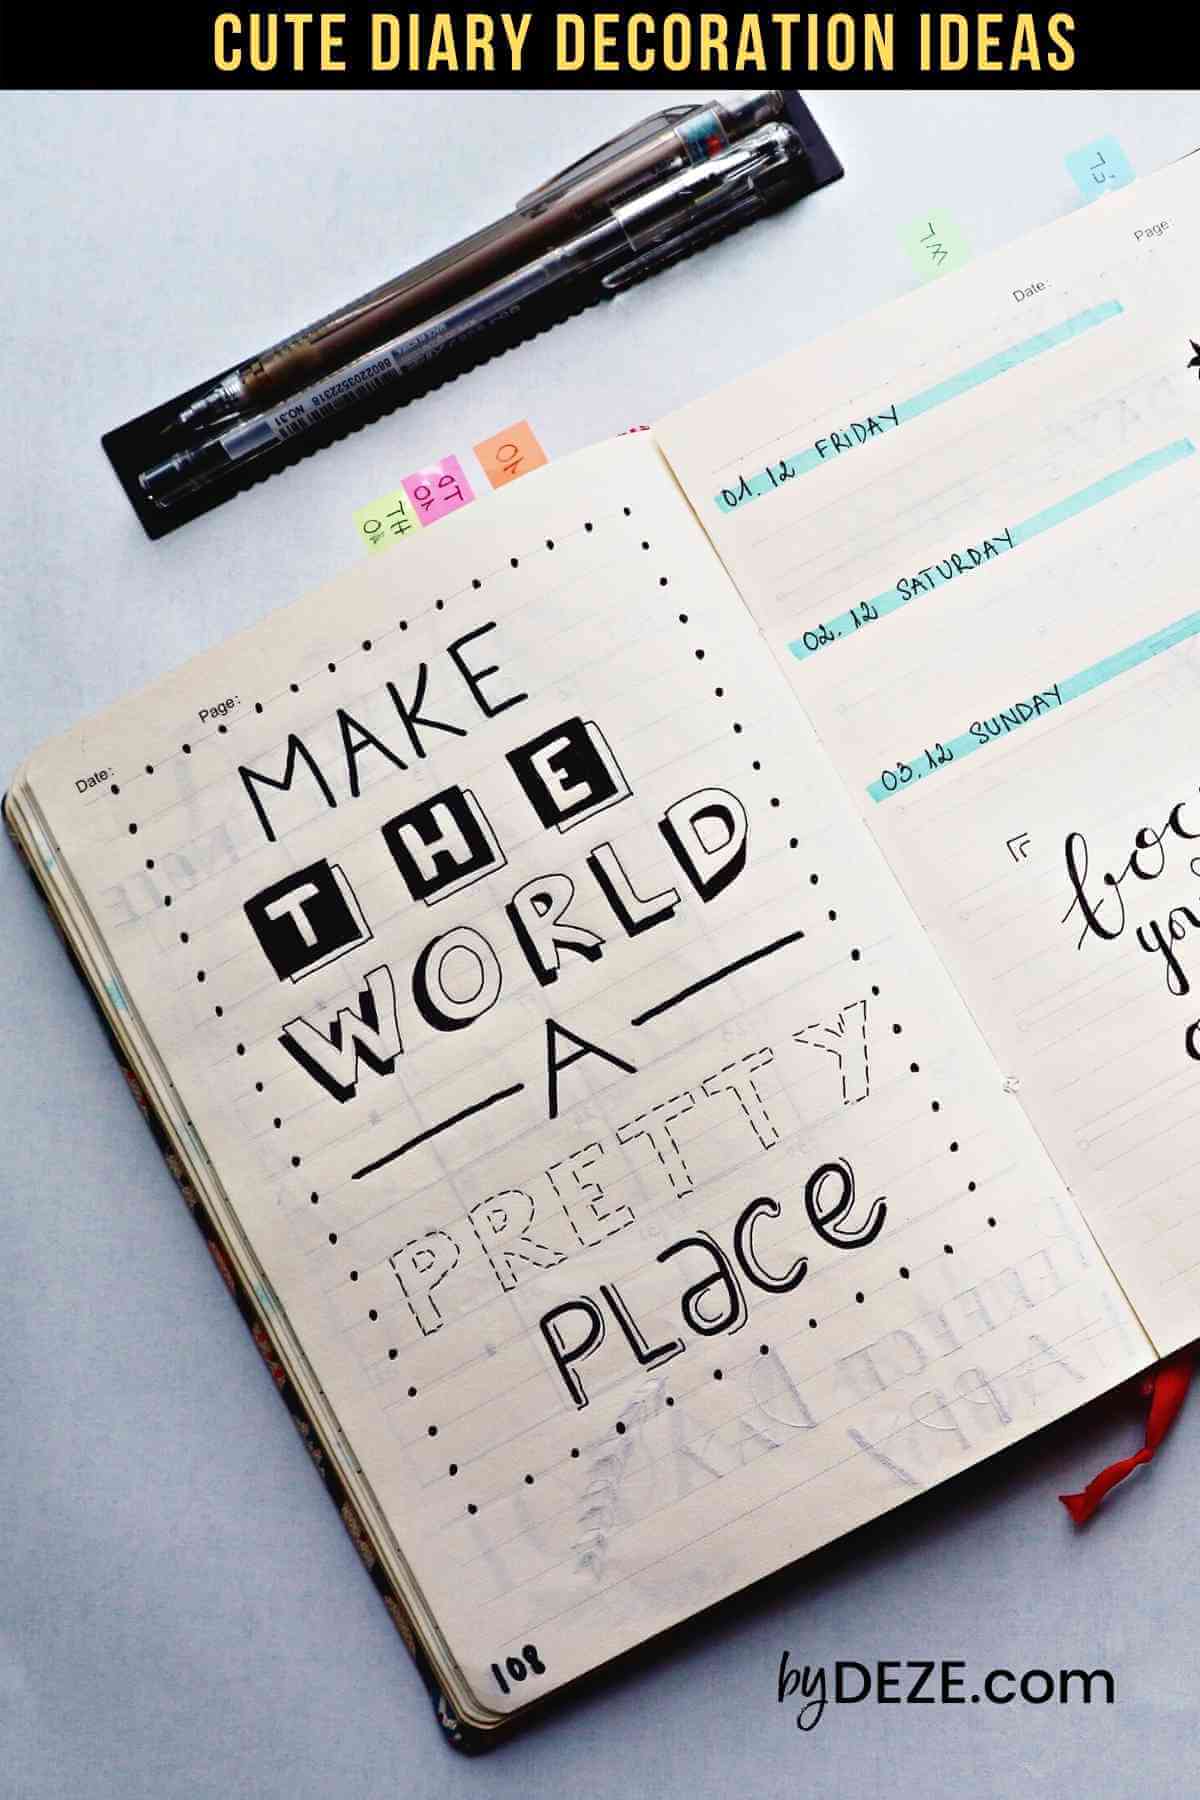 CUTE DIARY DECORATION IDEAS
8802203522318
NO.31
TH
TO
DY
Page:
Date:
MAKE
THE
WORLD
A
PRETTY
PLACE
108
Page:
Date:
01.12 FRIDAY
02.12 SATURDAY
03.12 SUNDAY
you
byDEZE.com